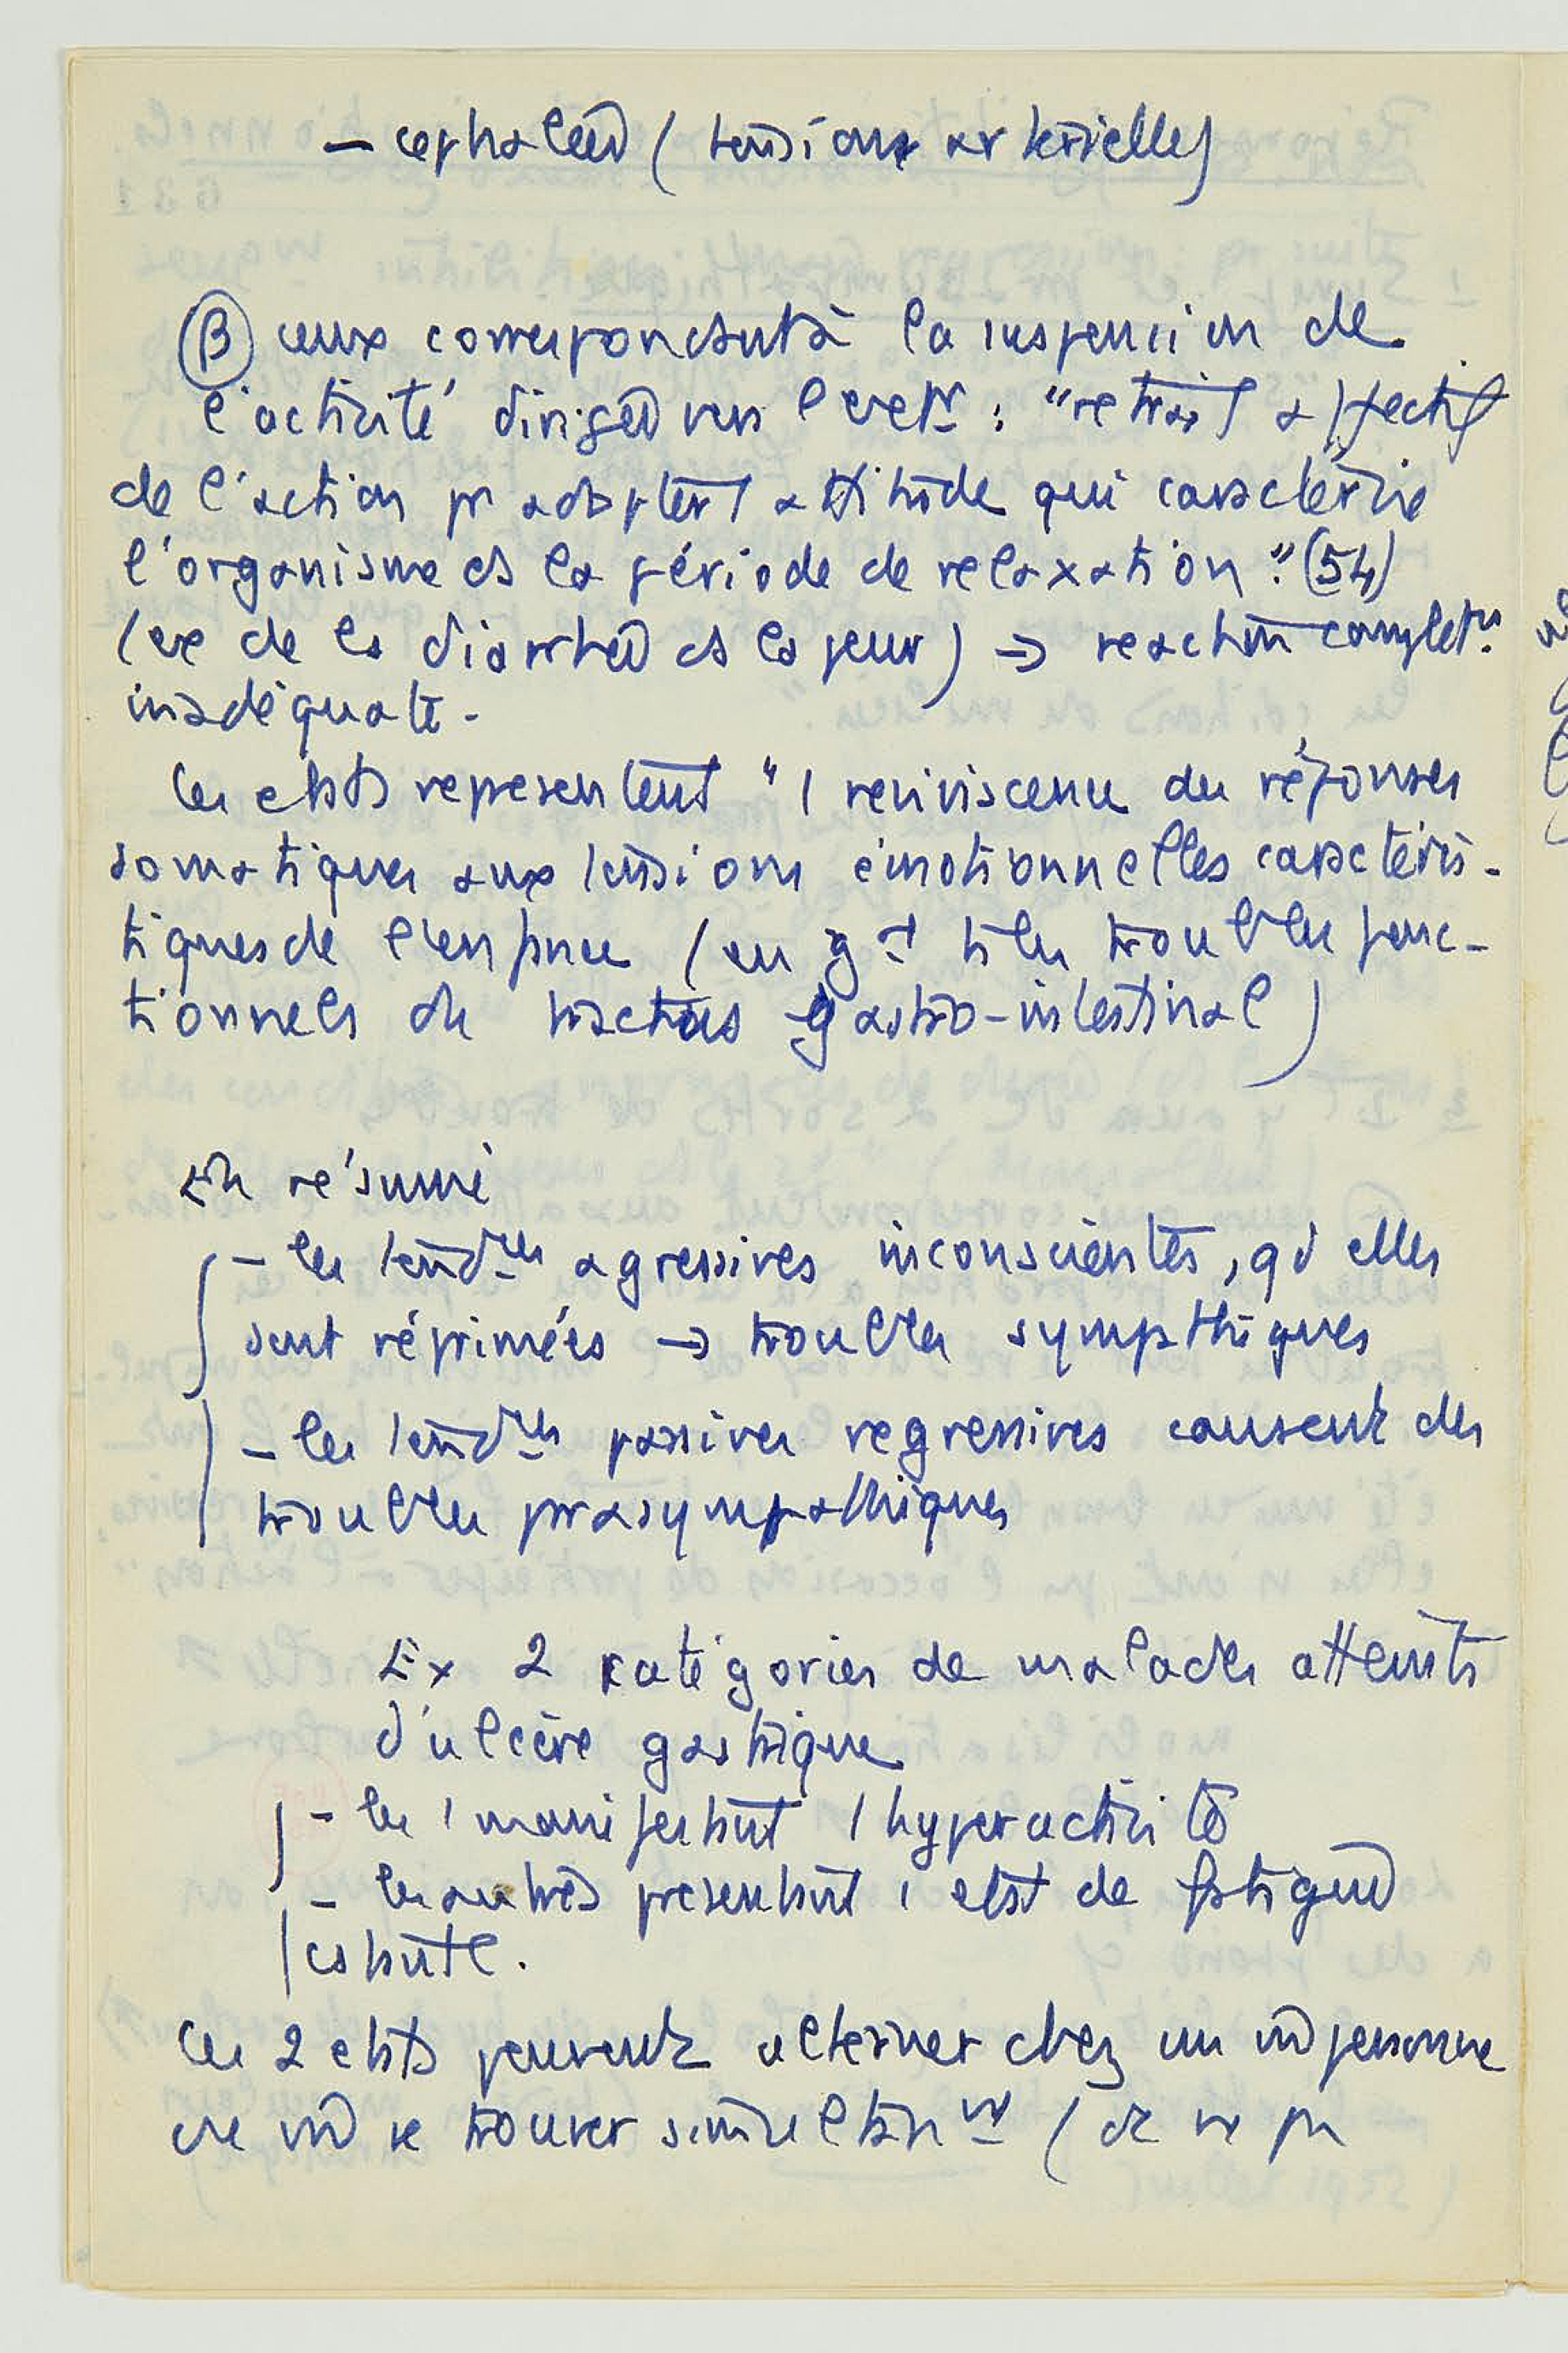 – cephalées (tensions artérielles)
(B) ceux correspondant à la suspension de
l'activité dirigée vers l'extr : "retrait affectif
de l'action pr adopter l'attitude qui caractérise
l'organisme ds la période de relaxation." (54)
(ex de la diarrhée ds la peur) → réaction complètt
inadéquate.
Ces états représentent "1 reviviscence des réponses
somatiques aux tensions émotionnelles caractéris-
tiques de l'enfance (en gal ts les troubles fonc-
tionnels du tractus gastro-intestinal)
En résumé
– les tendces agressives inconscientes, qd elles
sont réprimées → troubles sympathiques
– les tendces passives regressives causent des
troubles parasympathiques
Ex 2 catégories de malades atteints
d'ulcère gastrique
– les 1 manifestent 1 hyperactivité
– les autres présentent 1 état de fatigue
cstante.
Ces 2 états peuvent alterner chez un m personne
m se trouver simultant (